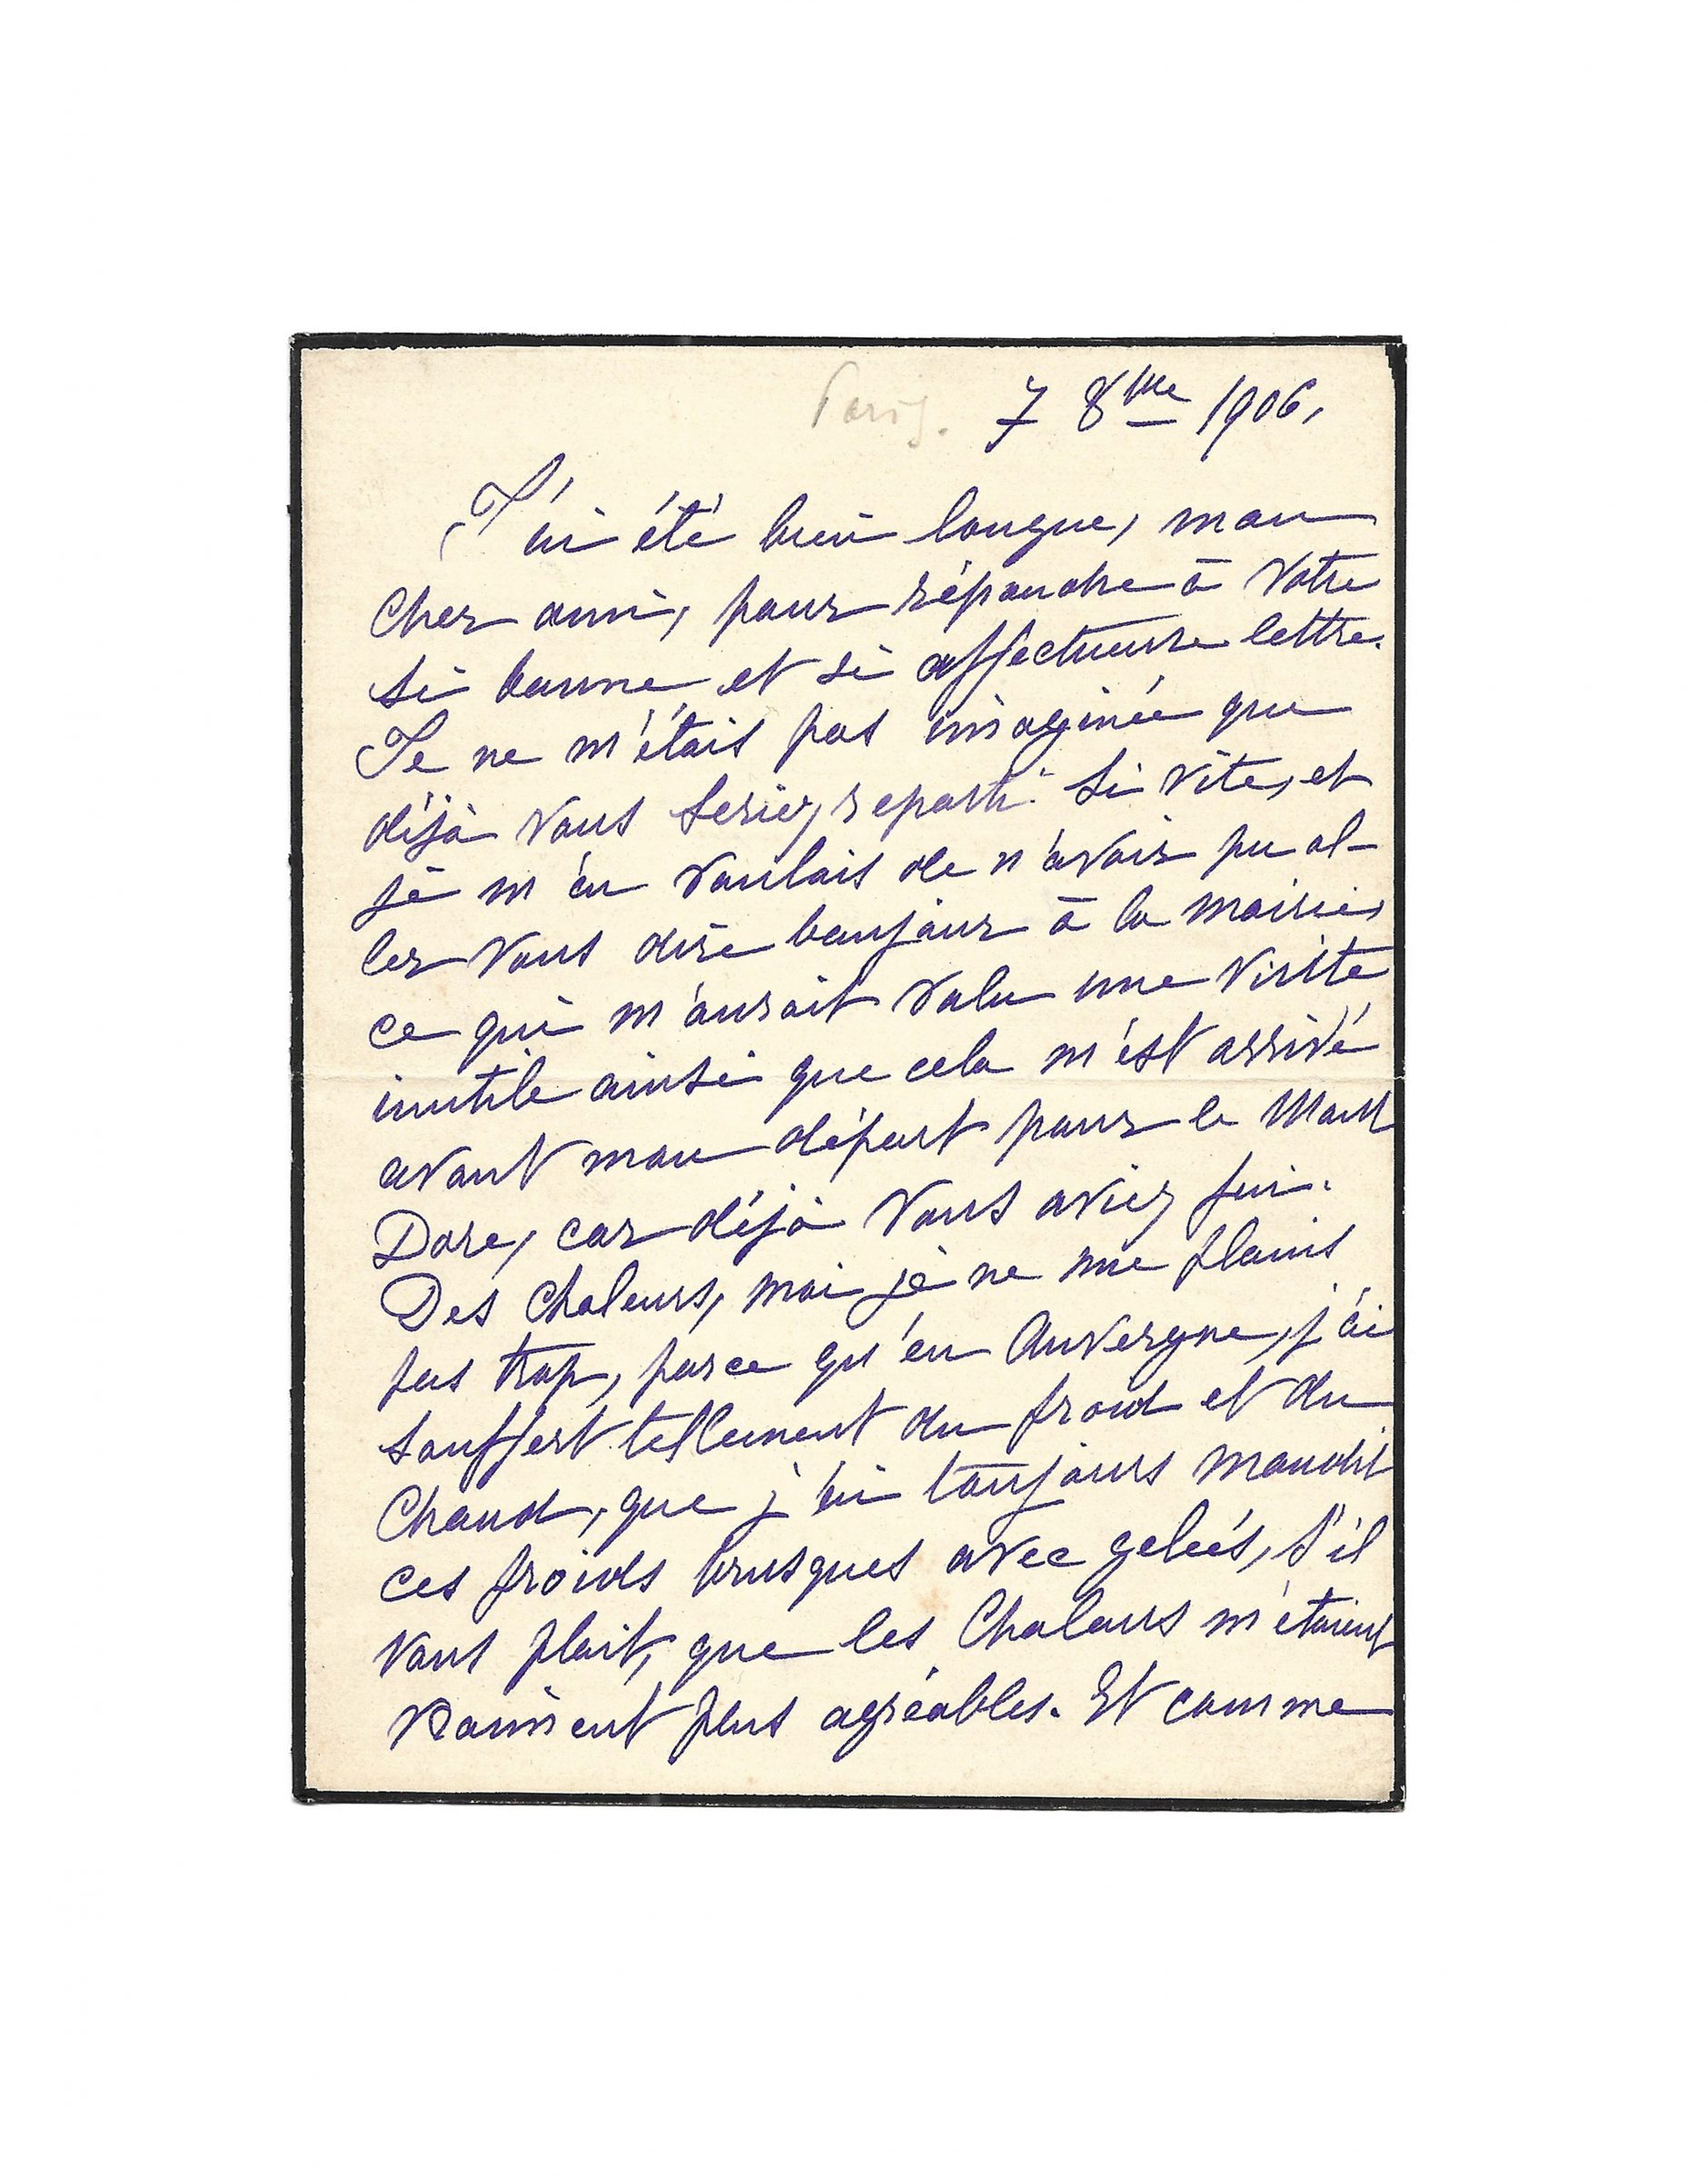 Paris. 7 8bre 1906.
J'ai été bien longue, mon
cher ami, pour répondre à votre
si bonne et si affectueuse lettre.
Je ne m'étais pas imaginée que
déjà vous seriez reparti si vite, et
je m'en voulais de n'avoir pu al-
ler vous dire bonjour à la mairie,
ce qui m'aurait valu une visite
inutile ainsi que cela m'est arrivé
avant mon départ pour le Mont
Dore, car déjà vous aviez fui.
Des chaleurs, moi je ne me plains
pas trop, parce qu'en Auvergne, j'ai
souffert tellement du froid et du
chaud, que j'ai toujours maudit
ces froids brusques avec gelées, s'il
vous plait, que les chaleurs m'étaient
vraiment plus agréables. Et comme